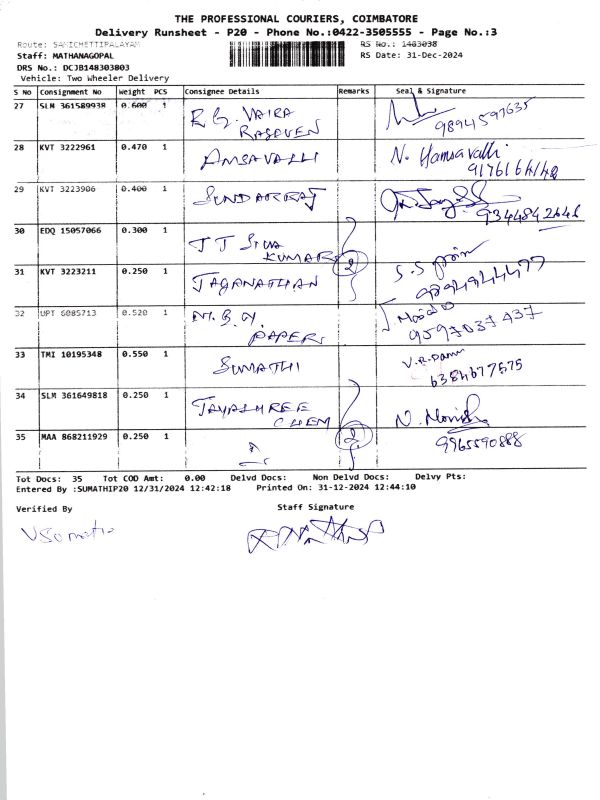 THE PROFESSIONAL COURIERS, COIMBATORE
Delivery Runsheet - P20 - Phone No.:0422-3505555 - Page No.:3
Route: SANICHETTIPALAYAM RS No.: 1483038
Staff: MATHANAGOPAL RS Date: 31-Dec-2024
DRS No.: DCJB148303803
Vehicle: Two Wheeler Delivery
S No Consignment No Weight PCS Consignee Details Remarks Seal & Signature
27 SLM 361589938 0.600 1 R G. VAIRA
9894597635
28 KVT 3222961 0.470 1 AMSAVALLI N. Hamsavalli
9176166148
29 KVT 3223906 0.400 1 SUNDARRAJ
9344842646
30 EDQ 15057066 0.300 1 J J SIVA
KUMAR 2
31 KVT 3223211 0.250 1 JAGANATHAN
32 UPT 6085713 0.520 1 M. B. N.
PAPER 9597037437
33 TMI 10195348 0.550 1 SUMATHI
6384677575
34 SLM 361649818 0.250 1 JAYASHREE
CHEM N.
35 MAA 868211929 0.250 1 2 9965590888
Tot Docs: 35 Tot COD Amt: 0.00 Delvd Docs: Non Delvd Docs: Delvy Pts:
Entered By :SUMATHIP20 12/31/2024 12:42:18 Printed On: 31-12-2024 12:44:10
Verified By Staff Signature